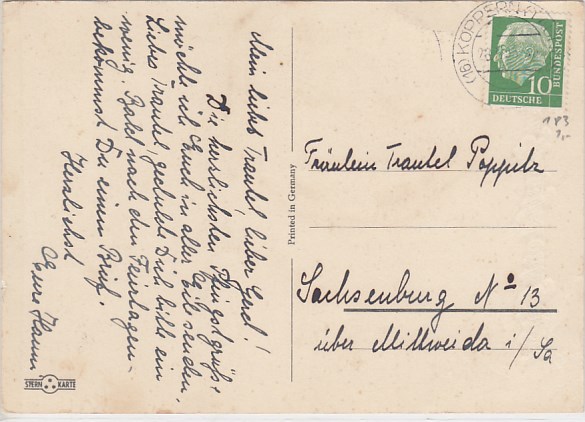 Mein liebes Trautel, lieber Gerd!
Die herzlichsten Pfingstgrüße
möchte ich Euch in aller Eile senden.
Liebes Trautel, gedulde Dich bitte ein
wenig. Bald nach den Feiertagen
bekommst Du einen Brief.
Herzlichst
Eure Hanni
STERN KARTE
Printed in Germany
(16) KÖPPERN (T
10
DEUTSCHE
BUNDESPOST
1P3
1,-
Fräulein Trautel Poppitz
Sachsenburg No 13
über Mittweida i/Sa